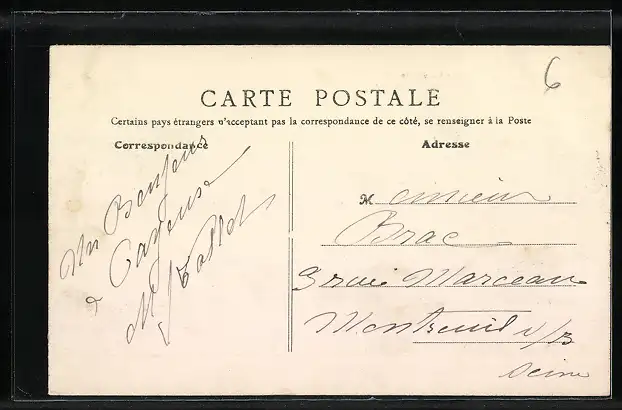 6
CARTE POSTALE
Certains pays étrangers n'acceptant pas la correspondance de ce côté, se renseigner à la Poste
Correspondance
Adresse
Un Bonjour
de Cayeux
M Collet
Monsieur
Brac
3 rue Marceau
Montreuil s/B
Seine